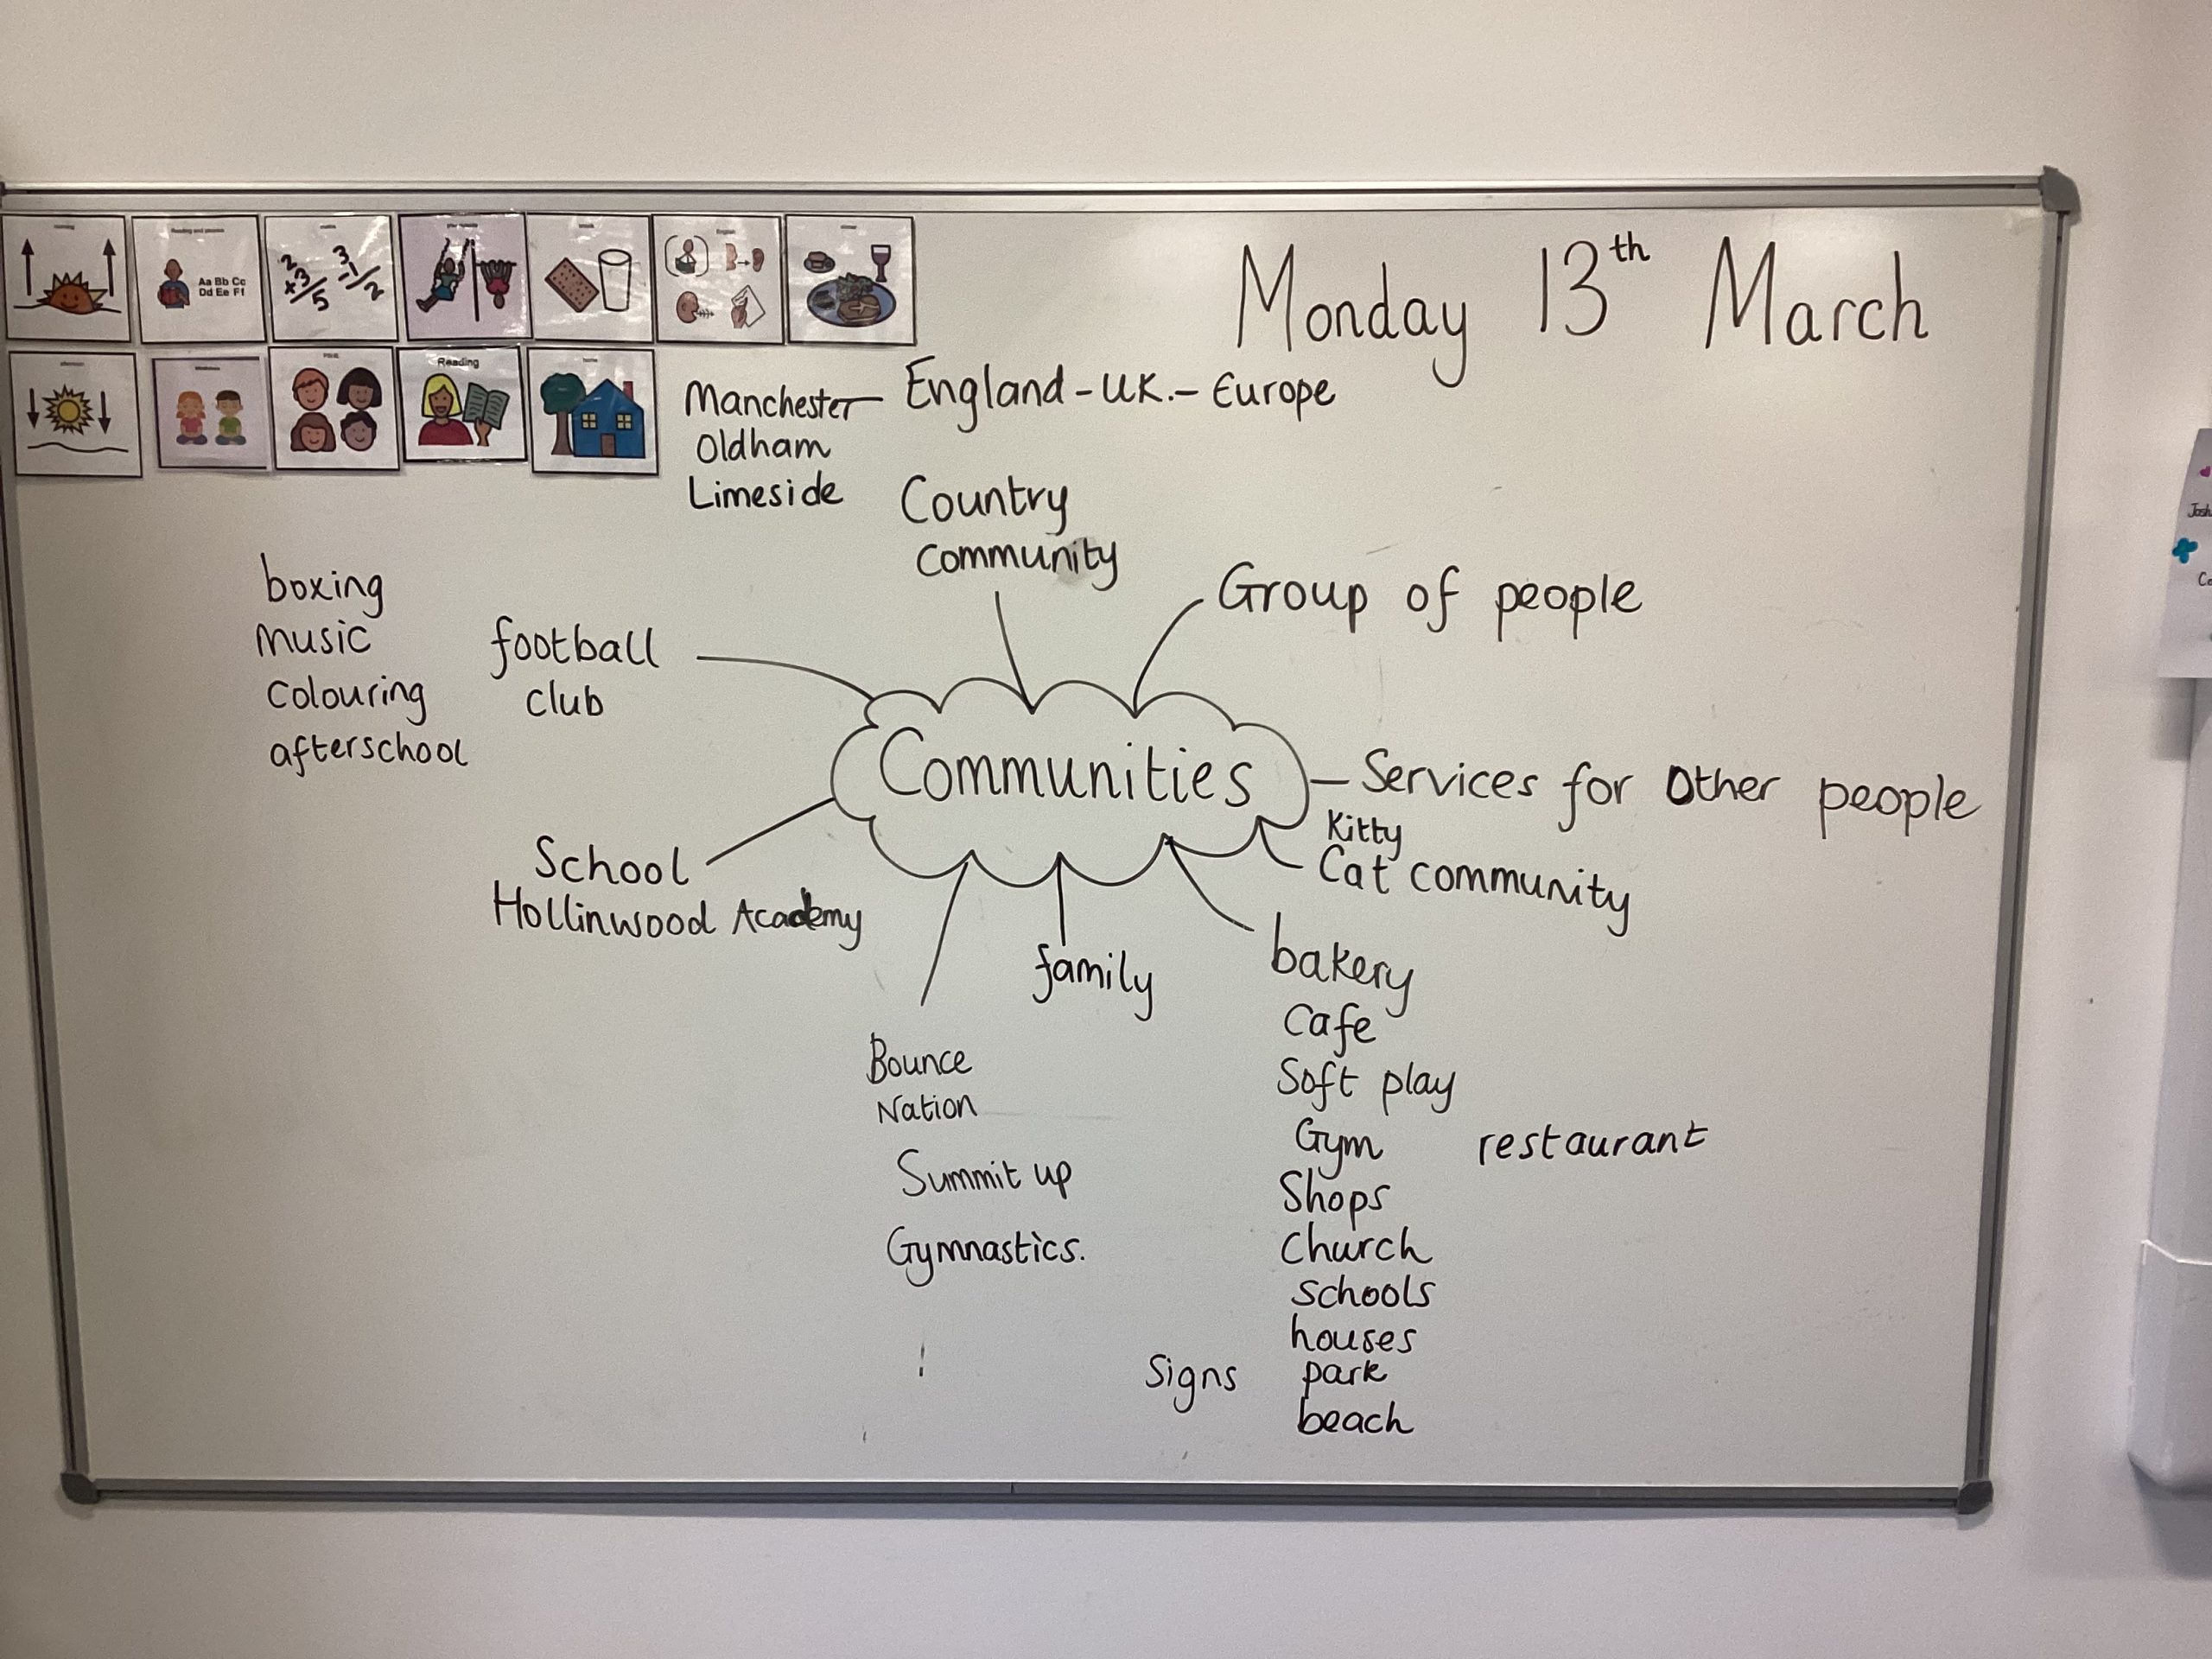 Reading and phonics
Aa Bb Cc
Dd Ee Ff
2
+3
5
3
-1
2
English
dinner
Monday 13th March
afternoon
PSHE
Reading
home
Manchester - England - UK. - Europe
Oldham
Limeside
Country
Community
Group of people
boxing
music
Colouring
afterschool
football
club
Communities
Services for Other people
Kitty
Cat community
School
Hollinwood Academy
family
bakery
Cafe
Soft play
Gym
restaurant
Shops
Church
Schools
houses
Signs
park
beach
Bounce
Nation
Summit up
Gymnastics.
Josh